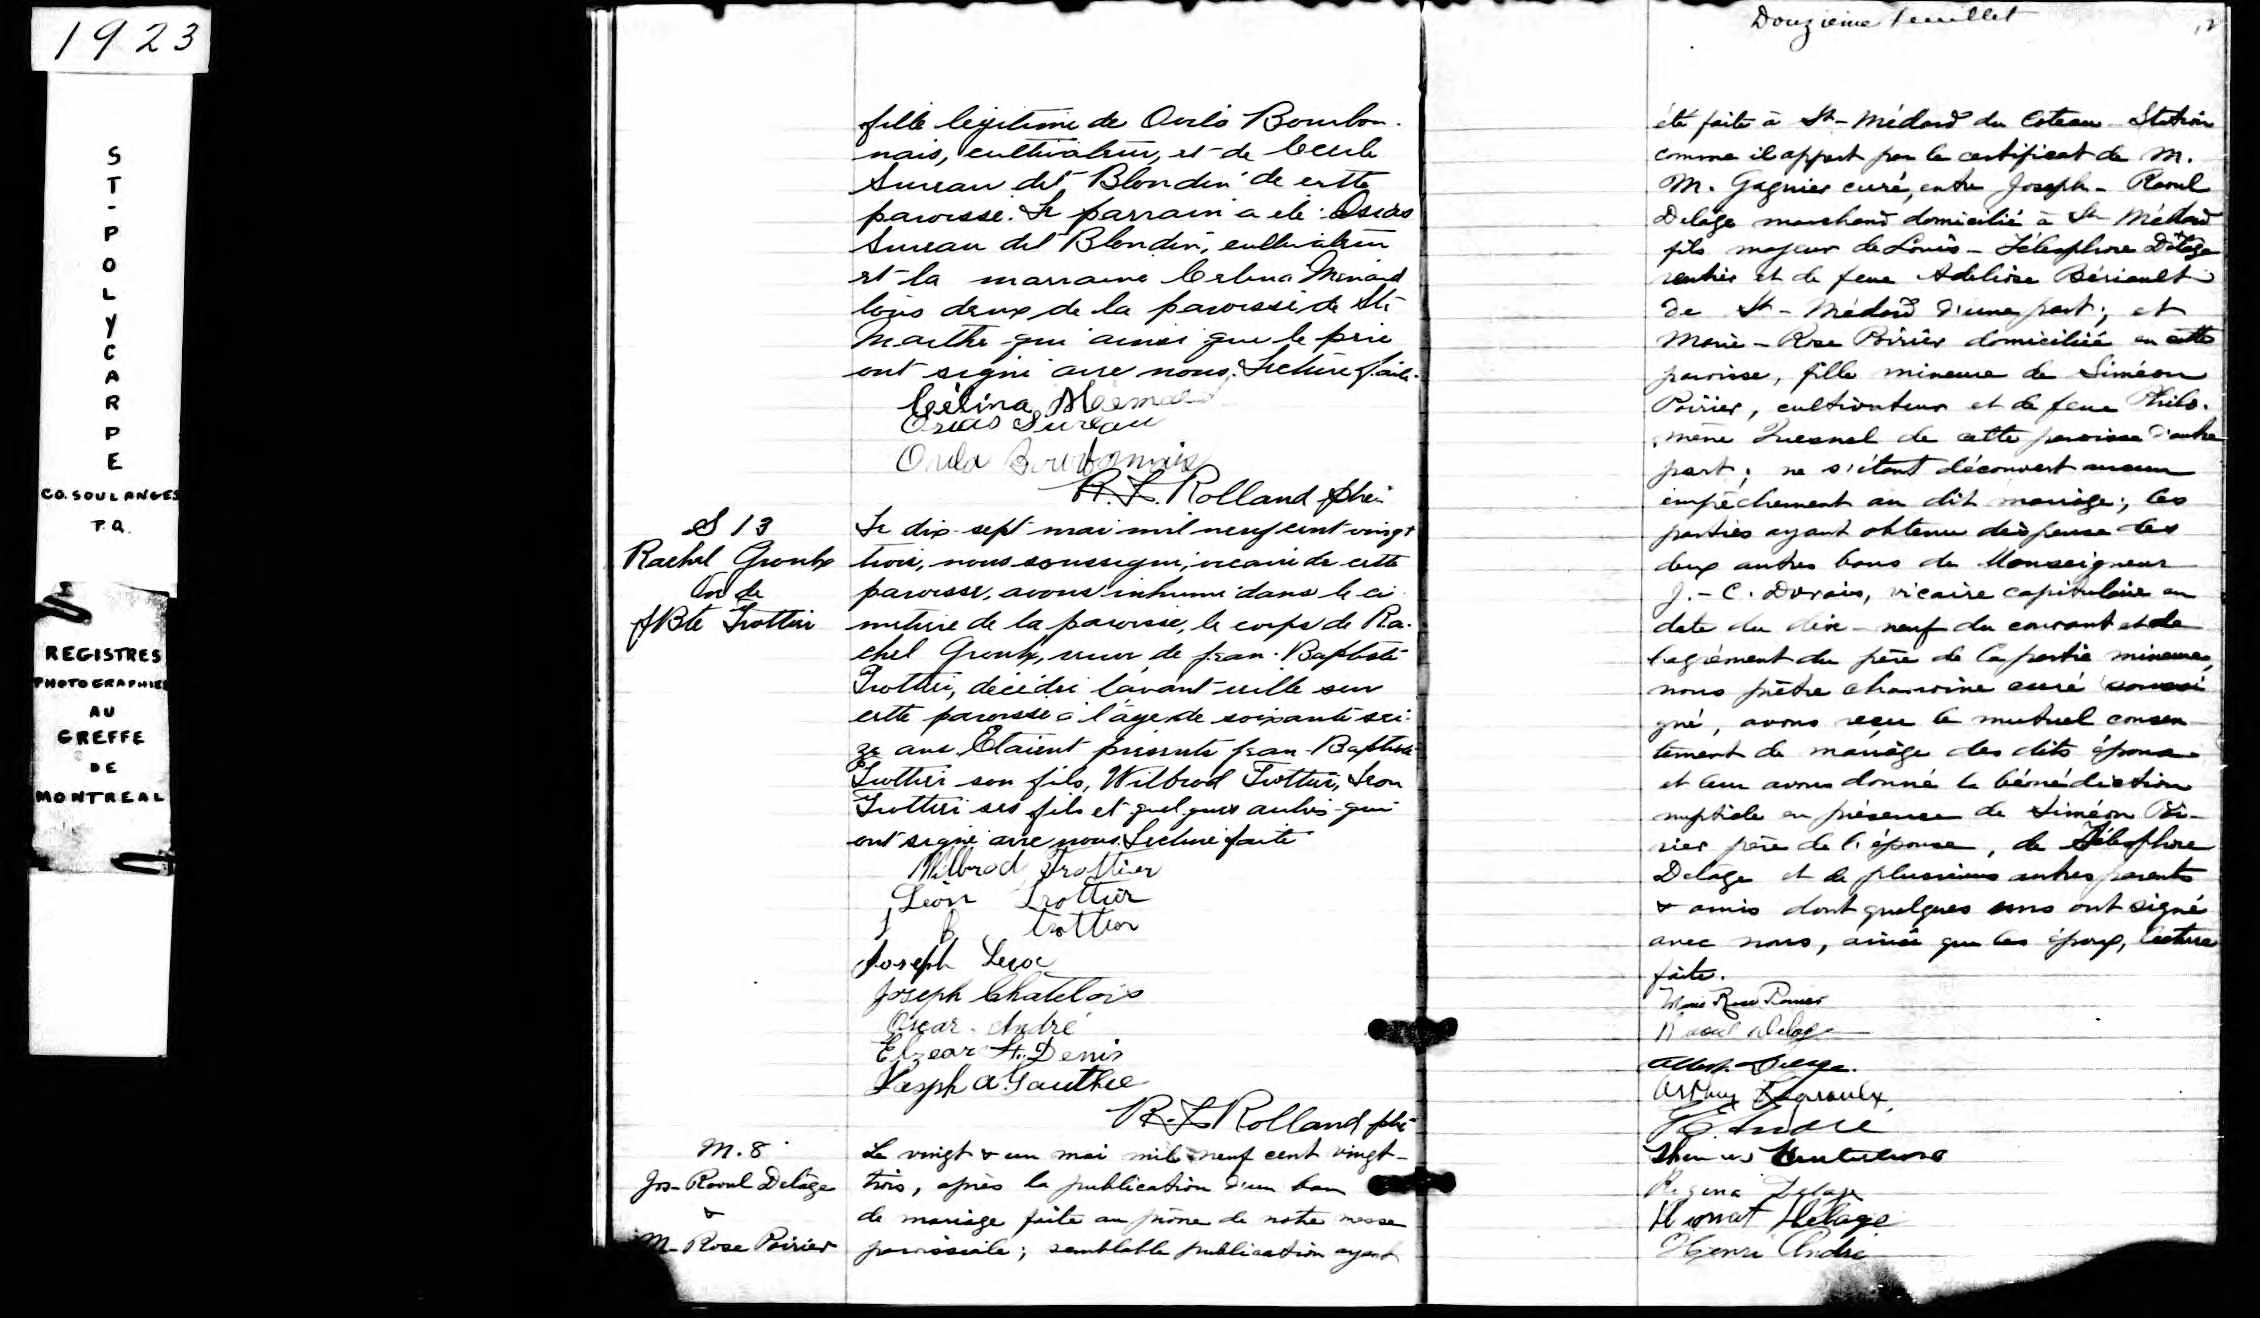 1923
ST-POLYCARPE
CO. SOULANGES
P.Q.
REGISTRES
PHOTOGRAPHIES
AU
GREFFE
DE
MONTREAL
fille légitime de Ovila Bourbon-
nais, cultivateur, et de Cécile
Sureau dit Blondin de cette
paroisse. Le parrain a été Osias
Sureau dit Blondin, cultivateur
et la marraine Célina Ménard
tous deux de la paroisse de Ste
Marthe qui ainsi que le père
ont signé avec nous. Lecture faite.
Célina
Osias Sureau
Ovila Bourbonnais
R. L. Rolland ptre
S 13
Rachel Groulx
Vve de
J Bte Trottier
Le dix-sept mai mil neuf cent vingt
trois, nous soussigné, vicaire de cette
paroisse, avons inhumé dans le ci
metière de la paroisse, le corps de Ra-
chel Groulx, veuve de Jean-Baptiste
Trottier, décédée l'avant-veille sur
cette paroisse à l'âge de soixante sei-
ze ans. Etaient présents Jean-Baptiste
Trottier son fils, Wilbrod Trottier, Léon
Trottier ses fils et quelques autres qui
ont signé avec nous. Lecture faite
Wilbrod Trottier
Léon Trottier
J B Trottier
Joseph
Joseph Chatelois
Oscar André
Elzear St. Denis
Joseph A. Gauthier
R. L. Rolland ptre
M. 8
Jos-Raoul Delâge
&
M-Rose Poirier
Le vingt & un mai mil neuf cent vingt-
trois, après la publication d'un ban
de mariage faite au prône de notre messe
paroissiale; semblable publication ayant
Douzième feuillet
12
été faite à St-Médard du Coteau-Station
comme il appert par le certificat de M.
M. Gagnier curé, entre Joseph-Raoul
Delâge marchand domicilié à St Médard
fils majeur de Louis-Télesphore Delâge
rentier et de feue Adeline Bériault
de St-Médard d'une part; et
Marie-Rose Poirier domiciliée en cette
paroisse, fille mineure de Siméon
Poirier, cultivateur et de feue Philo-
mène Quesnel de cette paroisse d'autre
part; ne s'étant découvert aucun
empêchement au dit mariage; les
parties ayant obtenu dispense des
deux autres bans de Monseigneur
J.-C. Dorais, vicaire capitulaire en
date du dix-neuf du courant et de
l'agrément du père de la partie mineure,
nous prêtre chanoine curé soussi
gné, avons reçu le mutuel consen
tement de mariage des dits époux
et leur avons donné la bénédiction
nuptiale en présence de Siméon Poi-
rier père de l'épouse, de Télesphore
Delâge et de plusieurs autres parents
& amis dont quelques uns ont signé
avec nous, ainsi que les époux, lecture
faite.
Marie Rose Poirier
Raoul Delage
Albert Delage
Arthur Legroulx
H. André
Regina Delage
Donat Delage
Henri André